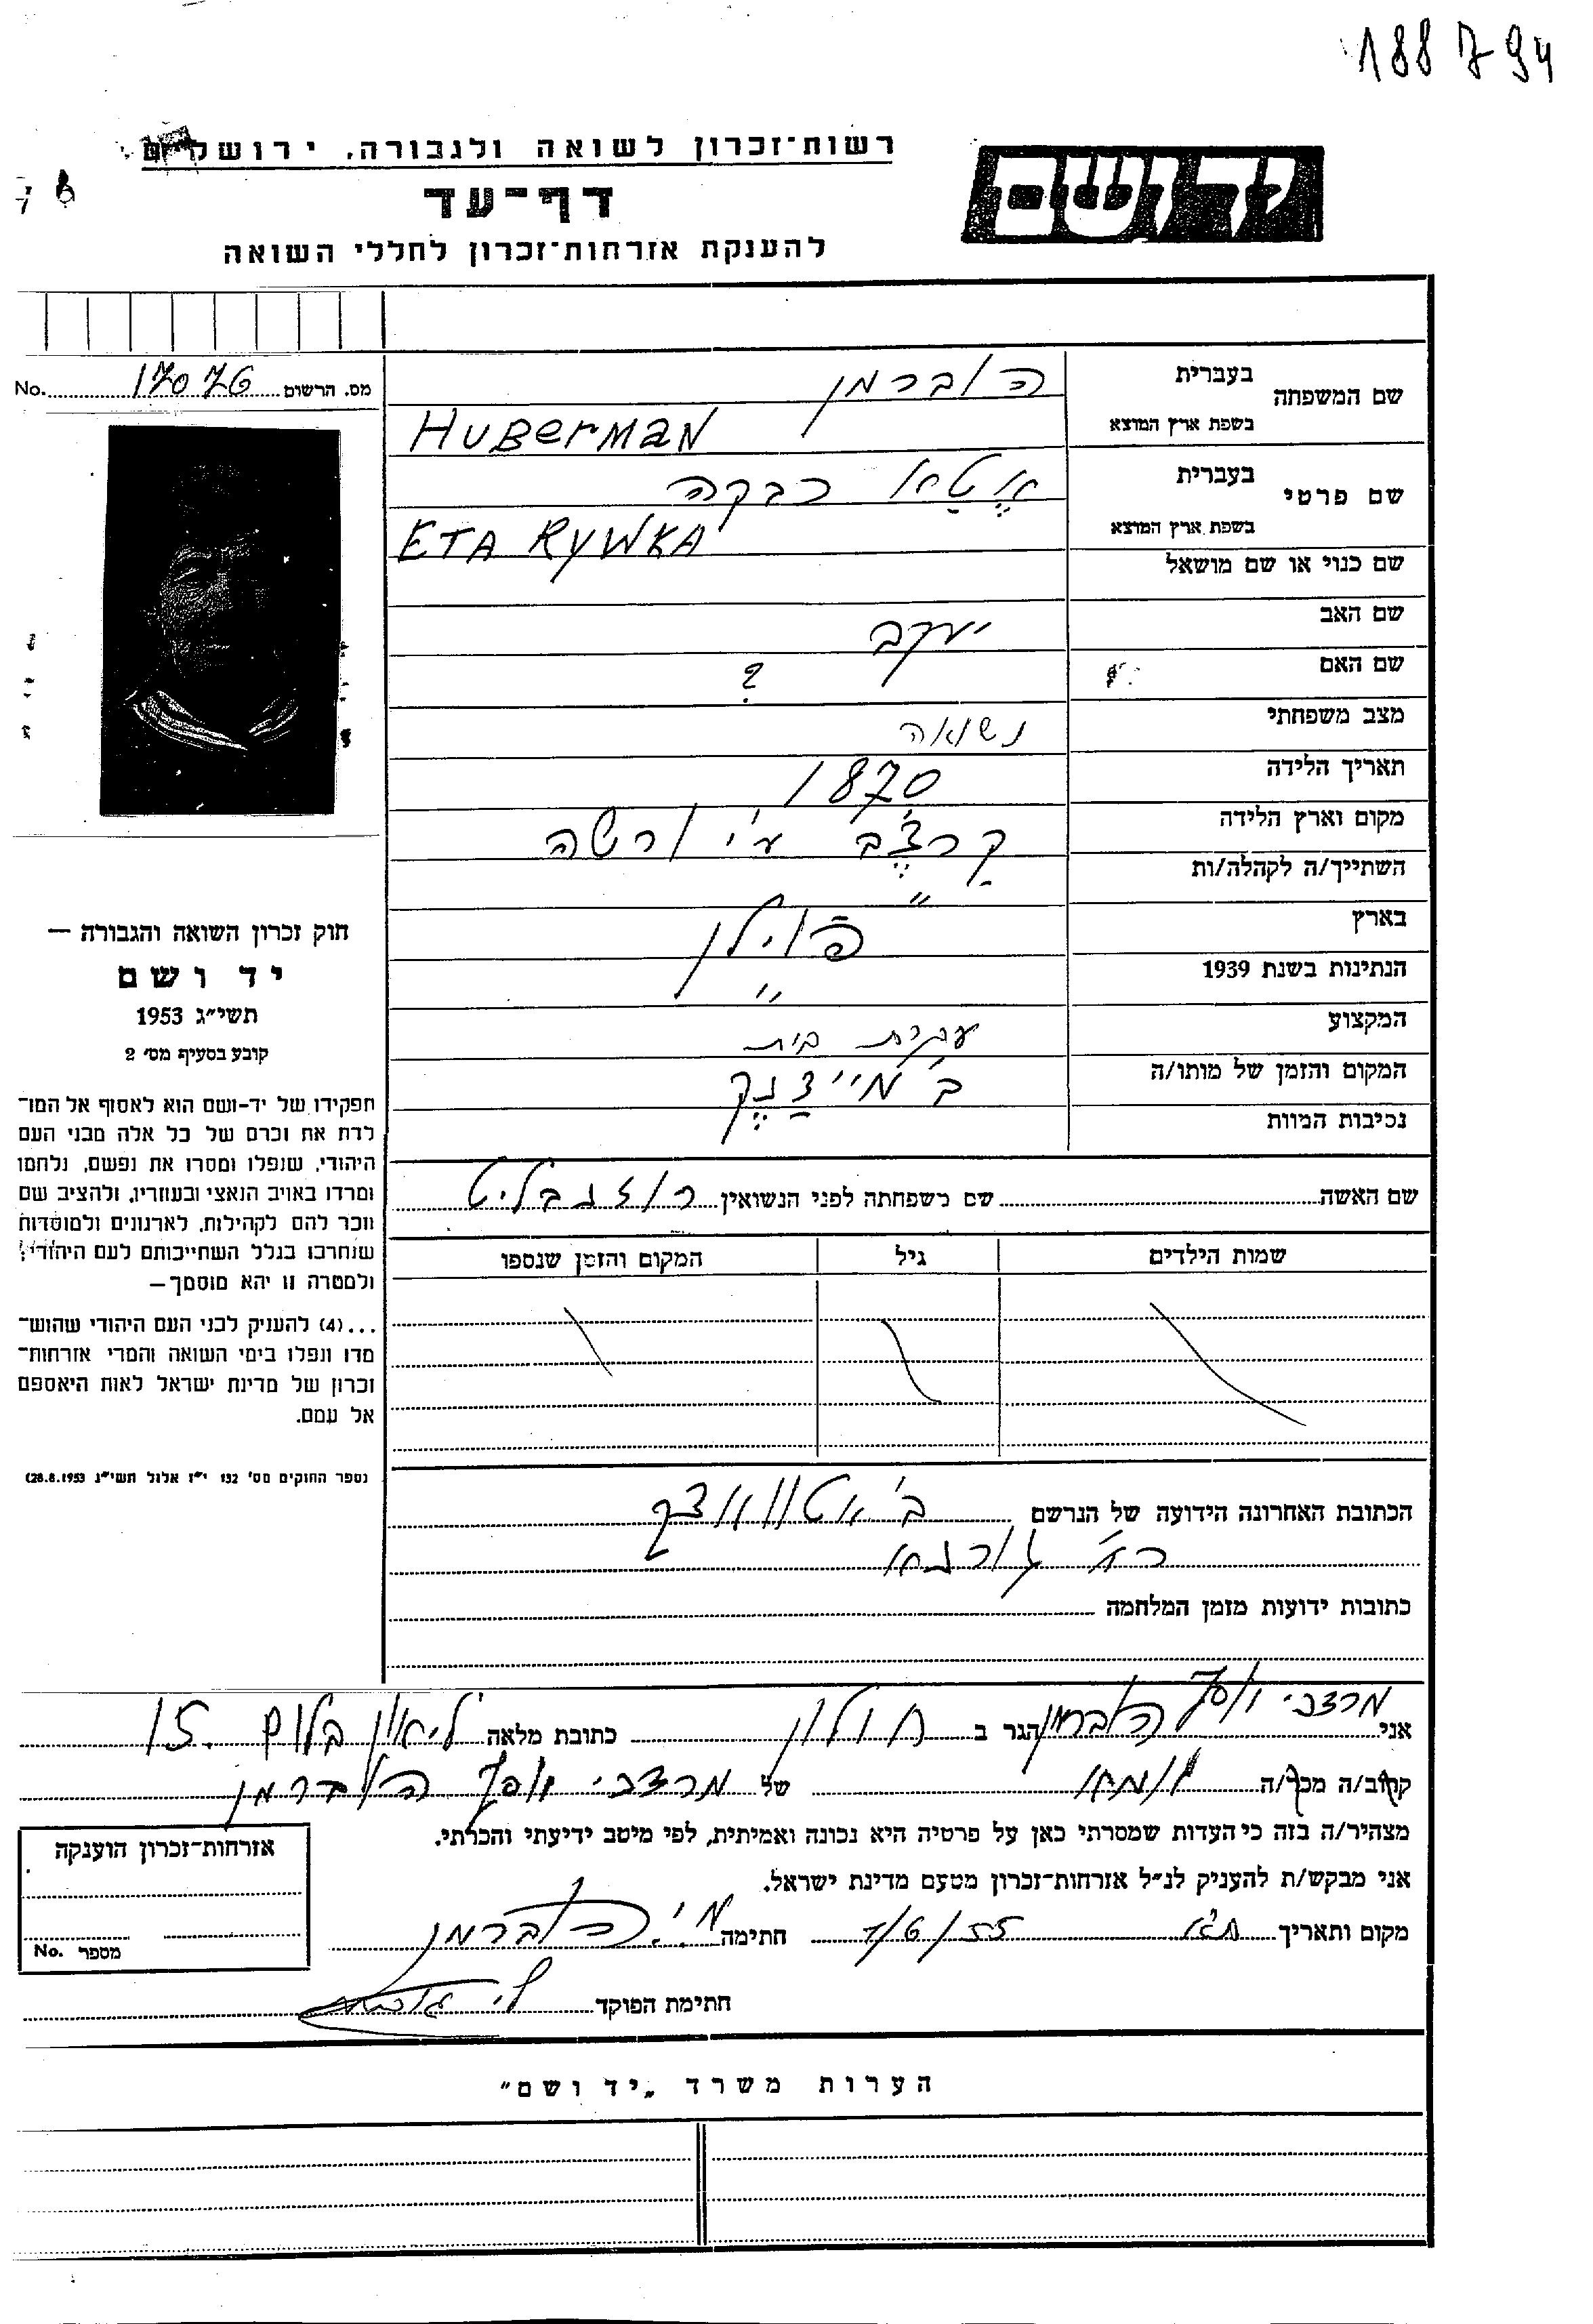 188794
רשות־זכרון לשואה ולגבורה, ירושלים
ידושם
דף־עד
להענקת אזרחות־זכרון לחללי השואה
מס. הרשום 17076 No.
שם המשפחה
בעברית הוברמן
בשפת ארץ המוצא HUBerMaN
שם פרטי
בעברית אֶטַא רבקה
בשפת ארץ המוצא ETA RYWKA
שם כנוי או שם מושאל
שם האב יעקב
שם האם ?
מצב משפחתי נשואה
תאריך הלידה 1870
מקום וארץ הלידה קרצ'ב ע"י ורשה
השתייך/ה לקהלה/ות "
בארץ פוילן
הנתינות בשנת 1939 "
המקצוע עקרת בית
המקום והזמן של מותו/ה ב' מיידַנֶק
נסיבות המוות
שם האשה שם משפחתה לפני הנשואין רוזנבליט
שמות הילדים גיל המקום והזמן שנספו
הכתובת האחרונה הידועה של הנרשם ב' אטוואצק
רח' גורנא
כתובות ידועות מזמן המלחמה
חוק זכרון השואה והגבורה —
יד ושם
תשי״ג 1953
קובע בסעיף מס׳ 2
תפקידו של יד-ושם הוא לאסוף אל המו־
לדת את זכרם של כל אלה מבני העם
היהודי, שנפלו ומסרו את נפשם, נלחמו
ומרדו באויב הנאצי ובעוזריו, ולהציב שם
וזכר להם לקהילות, לארגונים ולמוסדות
שנחרבו בגלל השתייכותם לעם היהודי,
ולמטרה זו יהא מוסמך—
...(4) להעניק לבני העם היהודי שהוש־
מדו ונפלו בימי השואה והמרי אזרחות־
זכרון של מדינת ישראל לאות היאספם
אל עמם.
(ספר החוקים מס׳ 132 י״ז אלול תשי״ג 28.8.1953)
אני מרדכי יוסף הוברמן הגר ב חולון כתובת מלאה ליאון בלום 15.
קרוב/ה מכר/ה של מרדכי יוסף הוברמן
מצהיר/ה בזה כי העדות שמסרתי כאן על פרטיה היא נכונה ואמיתית, לפי מיטב ידיעתי והכרתי.
אני מבקש/ת להעניק לנ״ל אזרחות־זכרון מטעם מדינת ישראל.
מקום ותאריך ת"א 7/6/55 חתימה מ.י. הוברמן
חתימת הפוקד
אזרחות־זכרון הוענקה
מספר No.
הערות משרד „יד ושם"